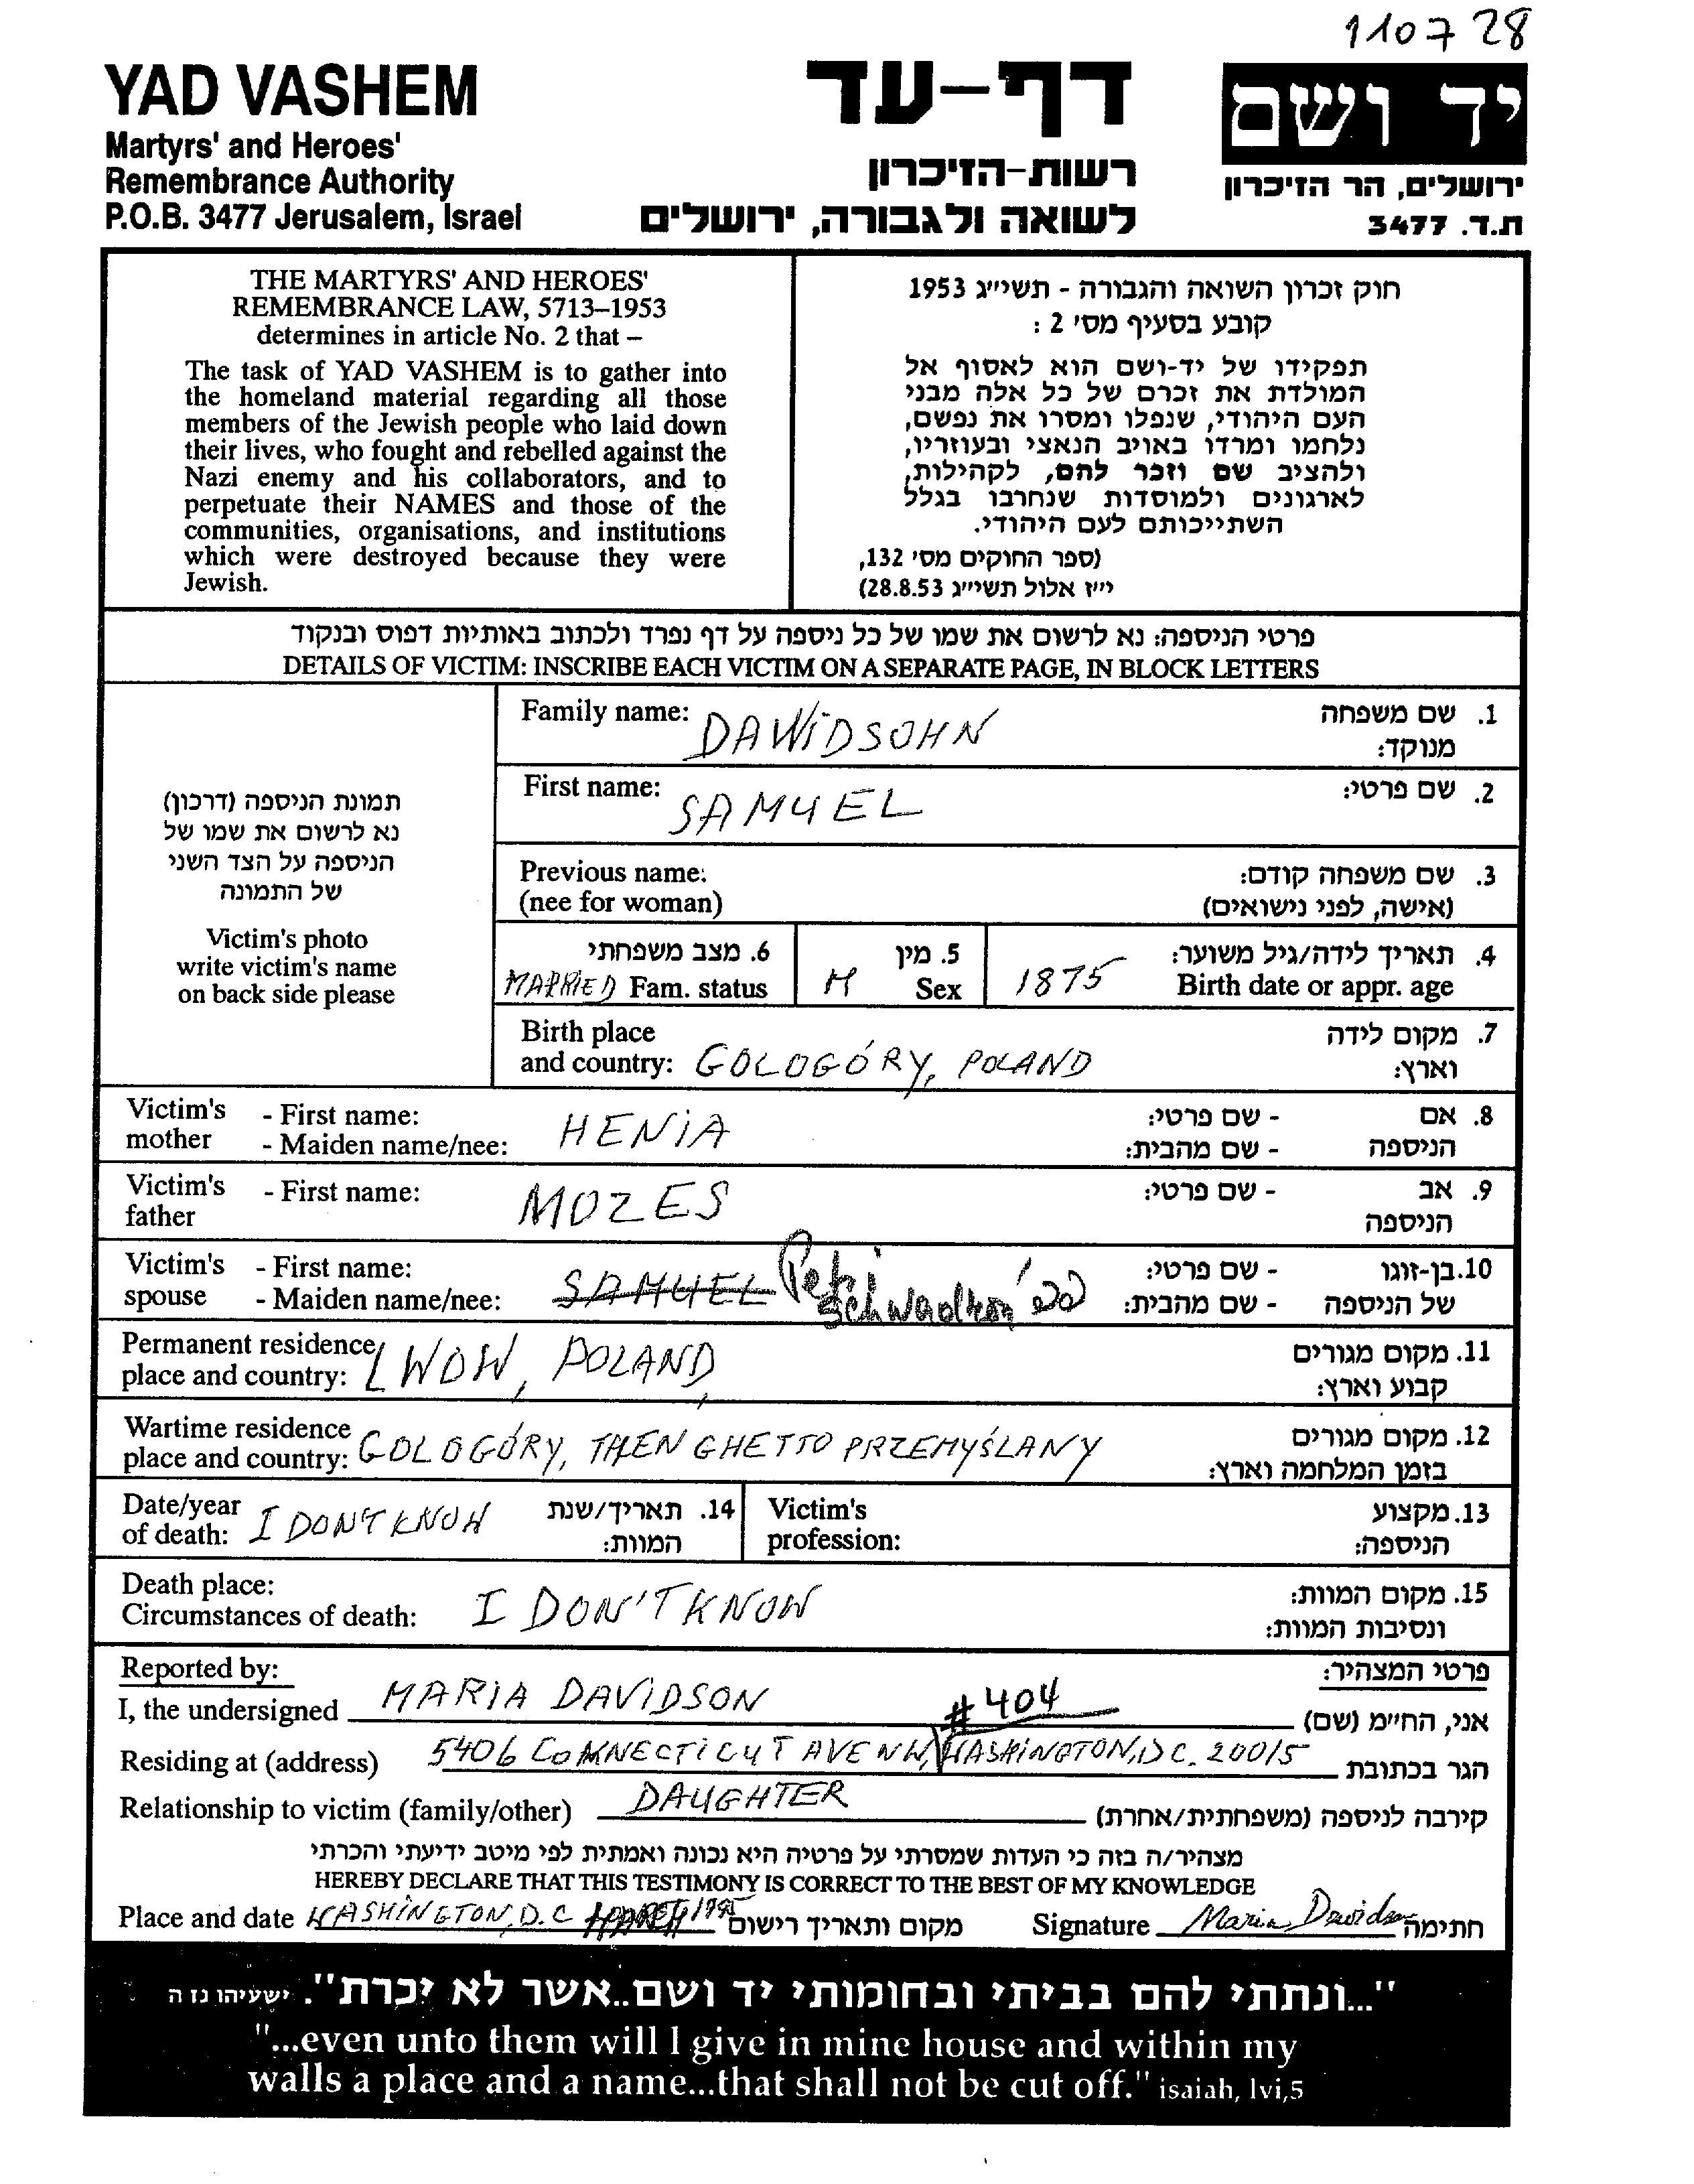 110728
YAD VASHEM
Martyrs' and Heroes'
Remembrance Authority
P.O.B. 3477 Jerusalem, Israel
דף-עד
רשות-הזיכרון
לשואה ולגבורה, ירושלים
יד ושם
ירושלים, הר הזיכרון
ת.ד. 3477
THE MARTYRS' AND HEROES'
REMEMBRANCE LAW, 5713–1953
determines in article No. 2 that –
The task of YAD VASHEM is to gather into
the homeland material regarding all those
members of the Jewish people who laid down
their lives, who fought and rebelled against the
Nazi enemy and his collaborators, and to
perpetuate their NAMES and those of the
communities, organisations, and institutions
which were destroyed because they were
Jewish.
חוק זכרון השואה והגבורה - תשי״ג 1953
קובע בסעיף מס' 2 :
תפקידו של יד-ושם הוא לאסוף אל
המולדת את זכרם של כל אלה מבני
העם היהודי, שנפלו ומסרו את נפשם,
נלחמו ומרדו באויב הנאצי ובעוזריו,
ולהציב שם וזכר להם, לקהילות,
לארגונים ולמוסדות שנחרבו בגלל
השתייכותם לעם היהודי.
(ספר החוקים מס' 132,
י״ז אלול תשי״ג 28.8.53)
פרטי הניספה: נא לרשום את שמו של כל ניספה על דף נפרד ולכתוב באותיות דפוס ובנקוד
DETAILS OF VICTIM: INSCRIBE EACH VICTIM ON A SEPARATE PAGE, IN BLOCK LETTERS
תמונת הניספה (דרכון)
נא לרשום את שמו של
הניספה על הצד השני
של התמונה
Victim's photo
write victim's name
on back side please
Family name: DAWIDSOHN 1. שם משפחה
מנוקד:
First name: SAMUEL 2. שם פרטי:
Previous name: 3. שם משפחה קודם:
(nee for woman) (אישה, לפני נישואים)
6. מצב משפחתי 5. מין 4. תאריך לידה/גיל משוער:
MARRIED Fam. status M Sex 1875 Birth date or appr. age
Birth place 7. מקום לידה
and country: GOLOGÓRY, POLAND וארץ:
Victim's - First name: HENIA - שם פרטי: 8. אם
mother - Maiden name/nee: - שם מהבית: הניספה
Victim's - First name: MOZES - שם פרטי: 9. אב
father הניספה
Victim's - First name: SAMUEL - שם פרטי: 10. בן-זוגו
spouse - Maiden name/nee: - שם מהבית: של הניספה
Permanent residence 11. מקום מגורים
place and country: LWOW, POLAND קבוע וארץ:
Wartime residence 12. מקום מגורים
place and country: GOLOGÓRY, THEN GHETTO PRZEMYŚLANY בזמן המלחמה וארץ:
Date/year 14. תאריך/שנת Victim's 13. מקצוע
of death: I DON'T KNOW המוות: profession: הניספה:
Death place: 15. מקום המוות:
Circumstances of death: I DON'T KNOW ונסיבות המוות:
Reported by: פרטי המצהיר:
I, the undersigned MARIA DAVIDSON #404 אני, החי״מ (שם)
Residing at (address) 5406 CONNECTICUT AVE NW, WASHINGTON, DC. 20015 הגר בכתובת
Relationship to victim (family/other) DAUGHTER קירבה לניספה (משפחתית/אחרת)
מצהיר/ה בזה כי העדות שמסרתי על פרטיה היא נכונה ואמתית לפי מיטב ידיעתי והכרתי
HEREBY DECLARE THAT THIS TESTIMONY IS CORRECT TO THE BEST OF MY KNOWLEDGE
Place and date WASHINGTON, D.C MARCH 1995 מקום ותאריך רישום Signature Maria Davidson חתימה
"...ונתתי להם בביתי ובחומותי יד ושם..אשר לא יכרת". ישעיהו נז ה
"...even unto them will I give in mine house and within my
walls a place and a name...that shall not be cut off." isaiah, lvi,5